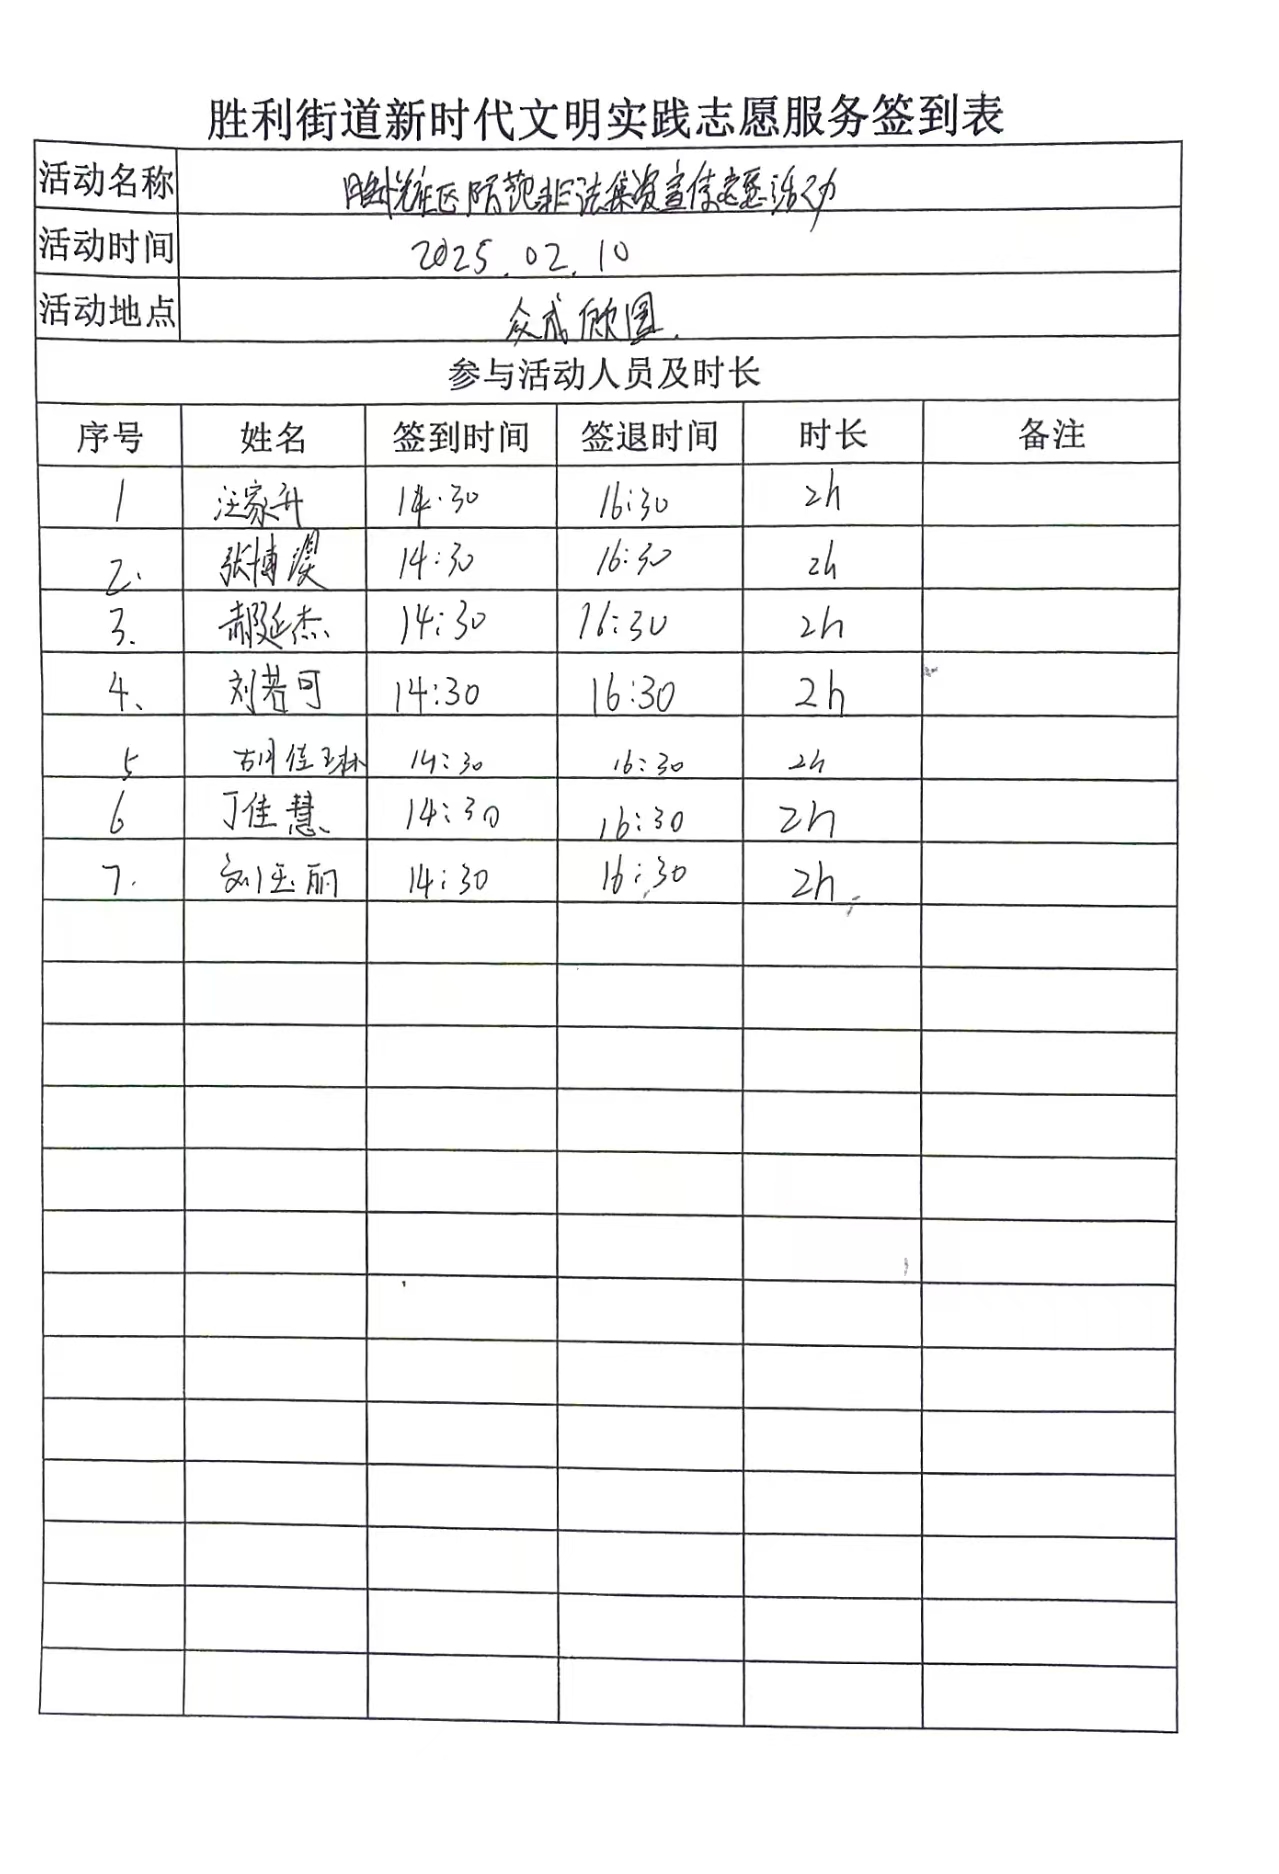 胜利街道新时代文明实践志愿服务签到表
活动名称 社区防范非法集资宣传志愿活动
活动时间 2025.02.10
活动地点 众成欣园.
参与活动人员及时长
序号 姓名 签到时间 签退时间 时长 备注
1 汪家升 14:30 16:30 2h
2. 张博 14:30 16:30 2h
3. 郝延杰 14:30 16:30 2h
4、 刘若可 14:30 16:30 2h
5 胡佳琳 14:30 16:30 2h
6 丁佳慧 14:30 16:30 2h
7. 刘玉丽 14:30 16:30 2h